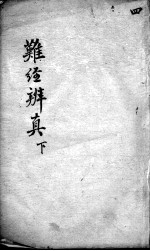 四
難經辨真下